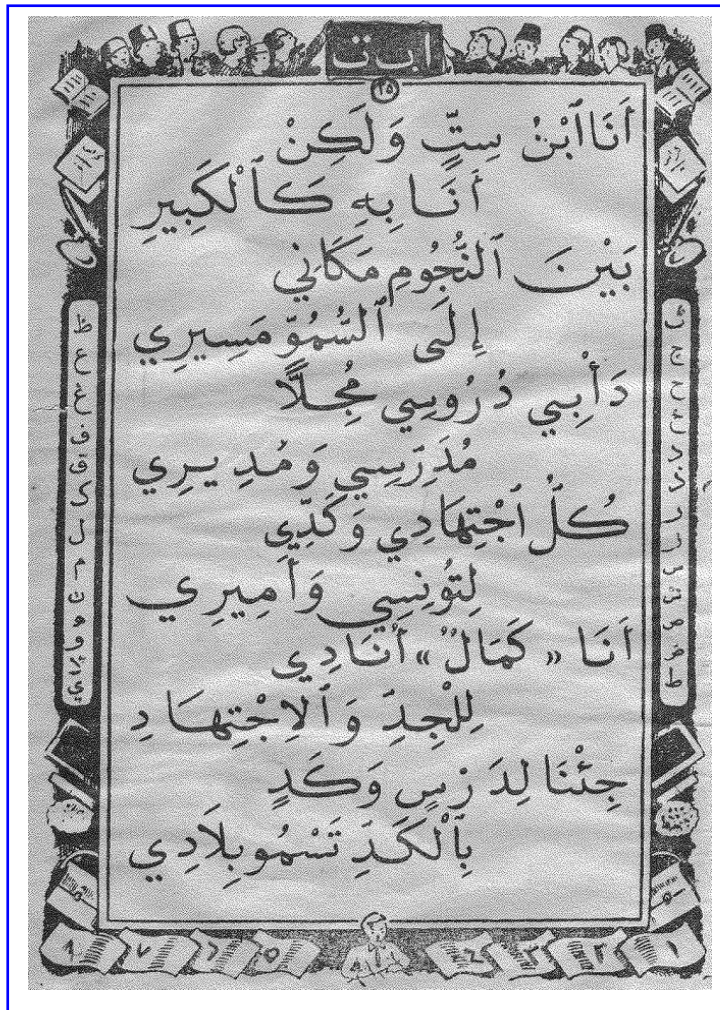 ا ب ت
٢٥
أَنَا ٱبْنُ سِتٍّ وَلَكِنْ
أَنَا بِهِ كَٱلْكَبِيرِ
بَيْنَ ٱلنُّجُومِ مَكَانِي
إِلَى ٱلسُّمُوِّ مَسِيرِي
دَأْبِي دُرُوسِي مُجِلًّا
مُدَرِّسِي وَمُدِيرِي
كُلُّ ٱجْتِهَادِي وَكَدِّي
لِتُونِسِي وَأَمِيرِي
أَنَا « كَمَالٌ » أُنَادِي
لِلْجِدِّ وَٱلِاجْتِهَادِ
جِئْنَا لِدَرْسٍ وَكَدٍّ
بِٱلْكَدِّ تَسْمُو بِلَادِي
ظ
ع
غ
ف
ق
ك
ل
م
ن
ه
و
لا
ي